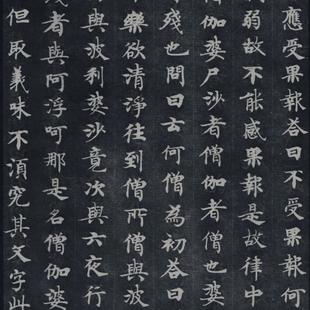 應受果報答曰不受果報何
弱故不能感果報是故律中
伽婆尸沙者僧伽者僧也婆
殘也問曰云何僧為初答曰
樂欲清淨往到僧所僧與波
與波利婆沙竟次與六夜行
殘者與阿浮呵那是名僧伽婆
但取義味不須究其文字此